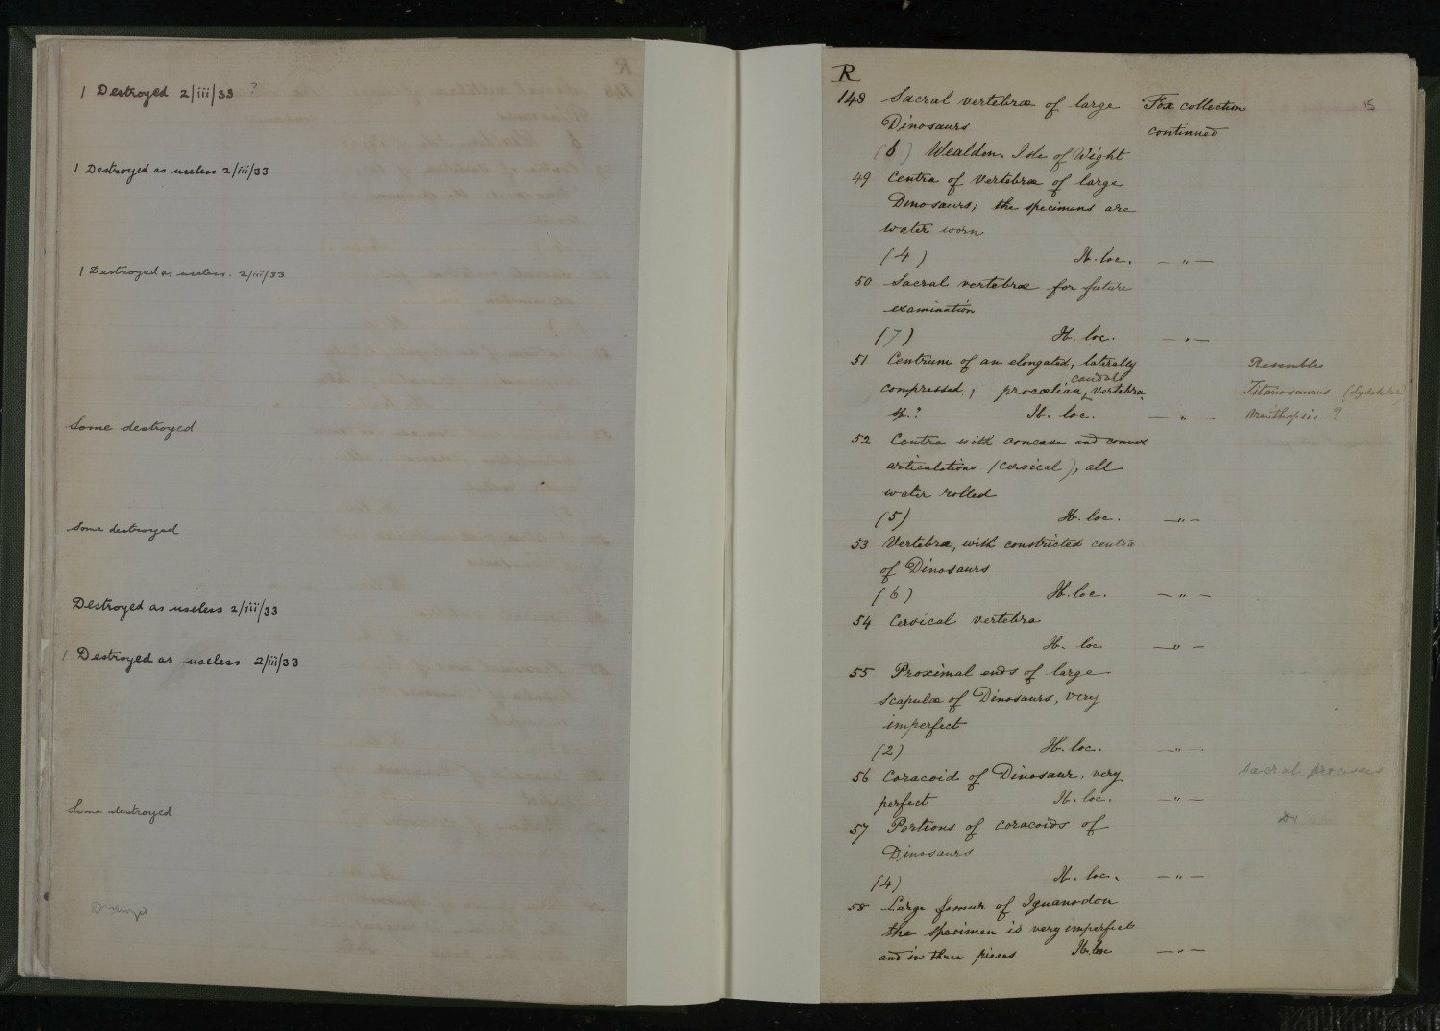 1 Destroyed 2/iii/33 ?
1 Destroyed as useless 2/iii/33
1 Destroyed as useless. 2/iii/33
Some destroyed
Some destroyed
Destroyed as useless 2/iii/33
1 Destroyed as useless 2/iii/33
Some destroyed
R
15
148 Sacral vertebræ of large Fox collection
Dinosaurs continued
(8) Wealden. Isle of Wight
49 Centra of vertebræ of large
Dinosaurs; the specimens are
water worn
(4) Ib. loc. — „ —
50 Sacral vertebræ for future
examination
(7) Ib. loc. — „ —
51 Centrum of an elongated, laterally Resembles
compressed, procœlian, caudal vertebra Titanosaurus
sp.? Ib. loc. — „ —
52 Centra with concave and convex
articulations (cervical), all
water rolled
(5) Ib. loc. — „ —
53 Vertebræ, with constricted centra
of Dinosaurs
(6) Ib. loc. — „ —
54 Cervical vertebra
Ib. loc — „ —
55 Proximal ends of large
scapulæ of Dinosaurs, very
imperfect
(2) Ib. loc. — „ —
56 Coracoid of Dinosaur, very sacral processes
perfect Ib. loc. — „ —
57 Portions of coracoids of
Dinosaurs
(4) Ib. loc. — „ —
58 Large femur of Iguanodon
the specimen is very imperfect
and in three pieces Ib. loc — „ —